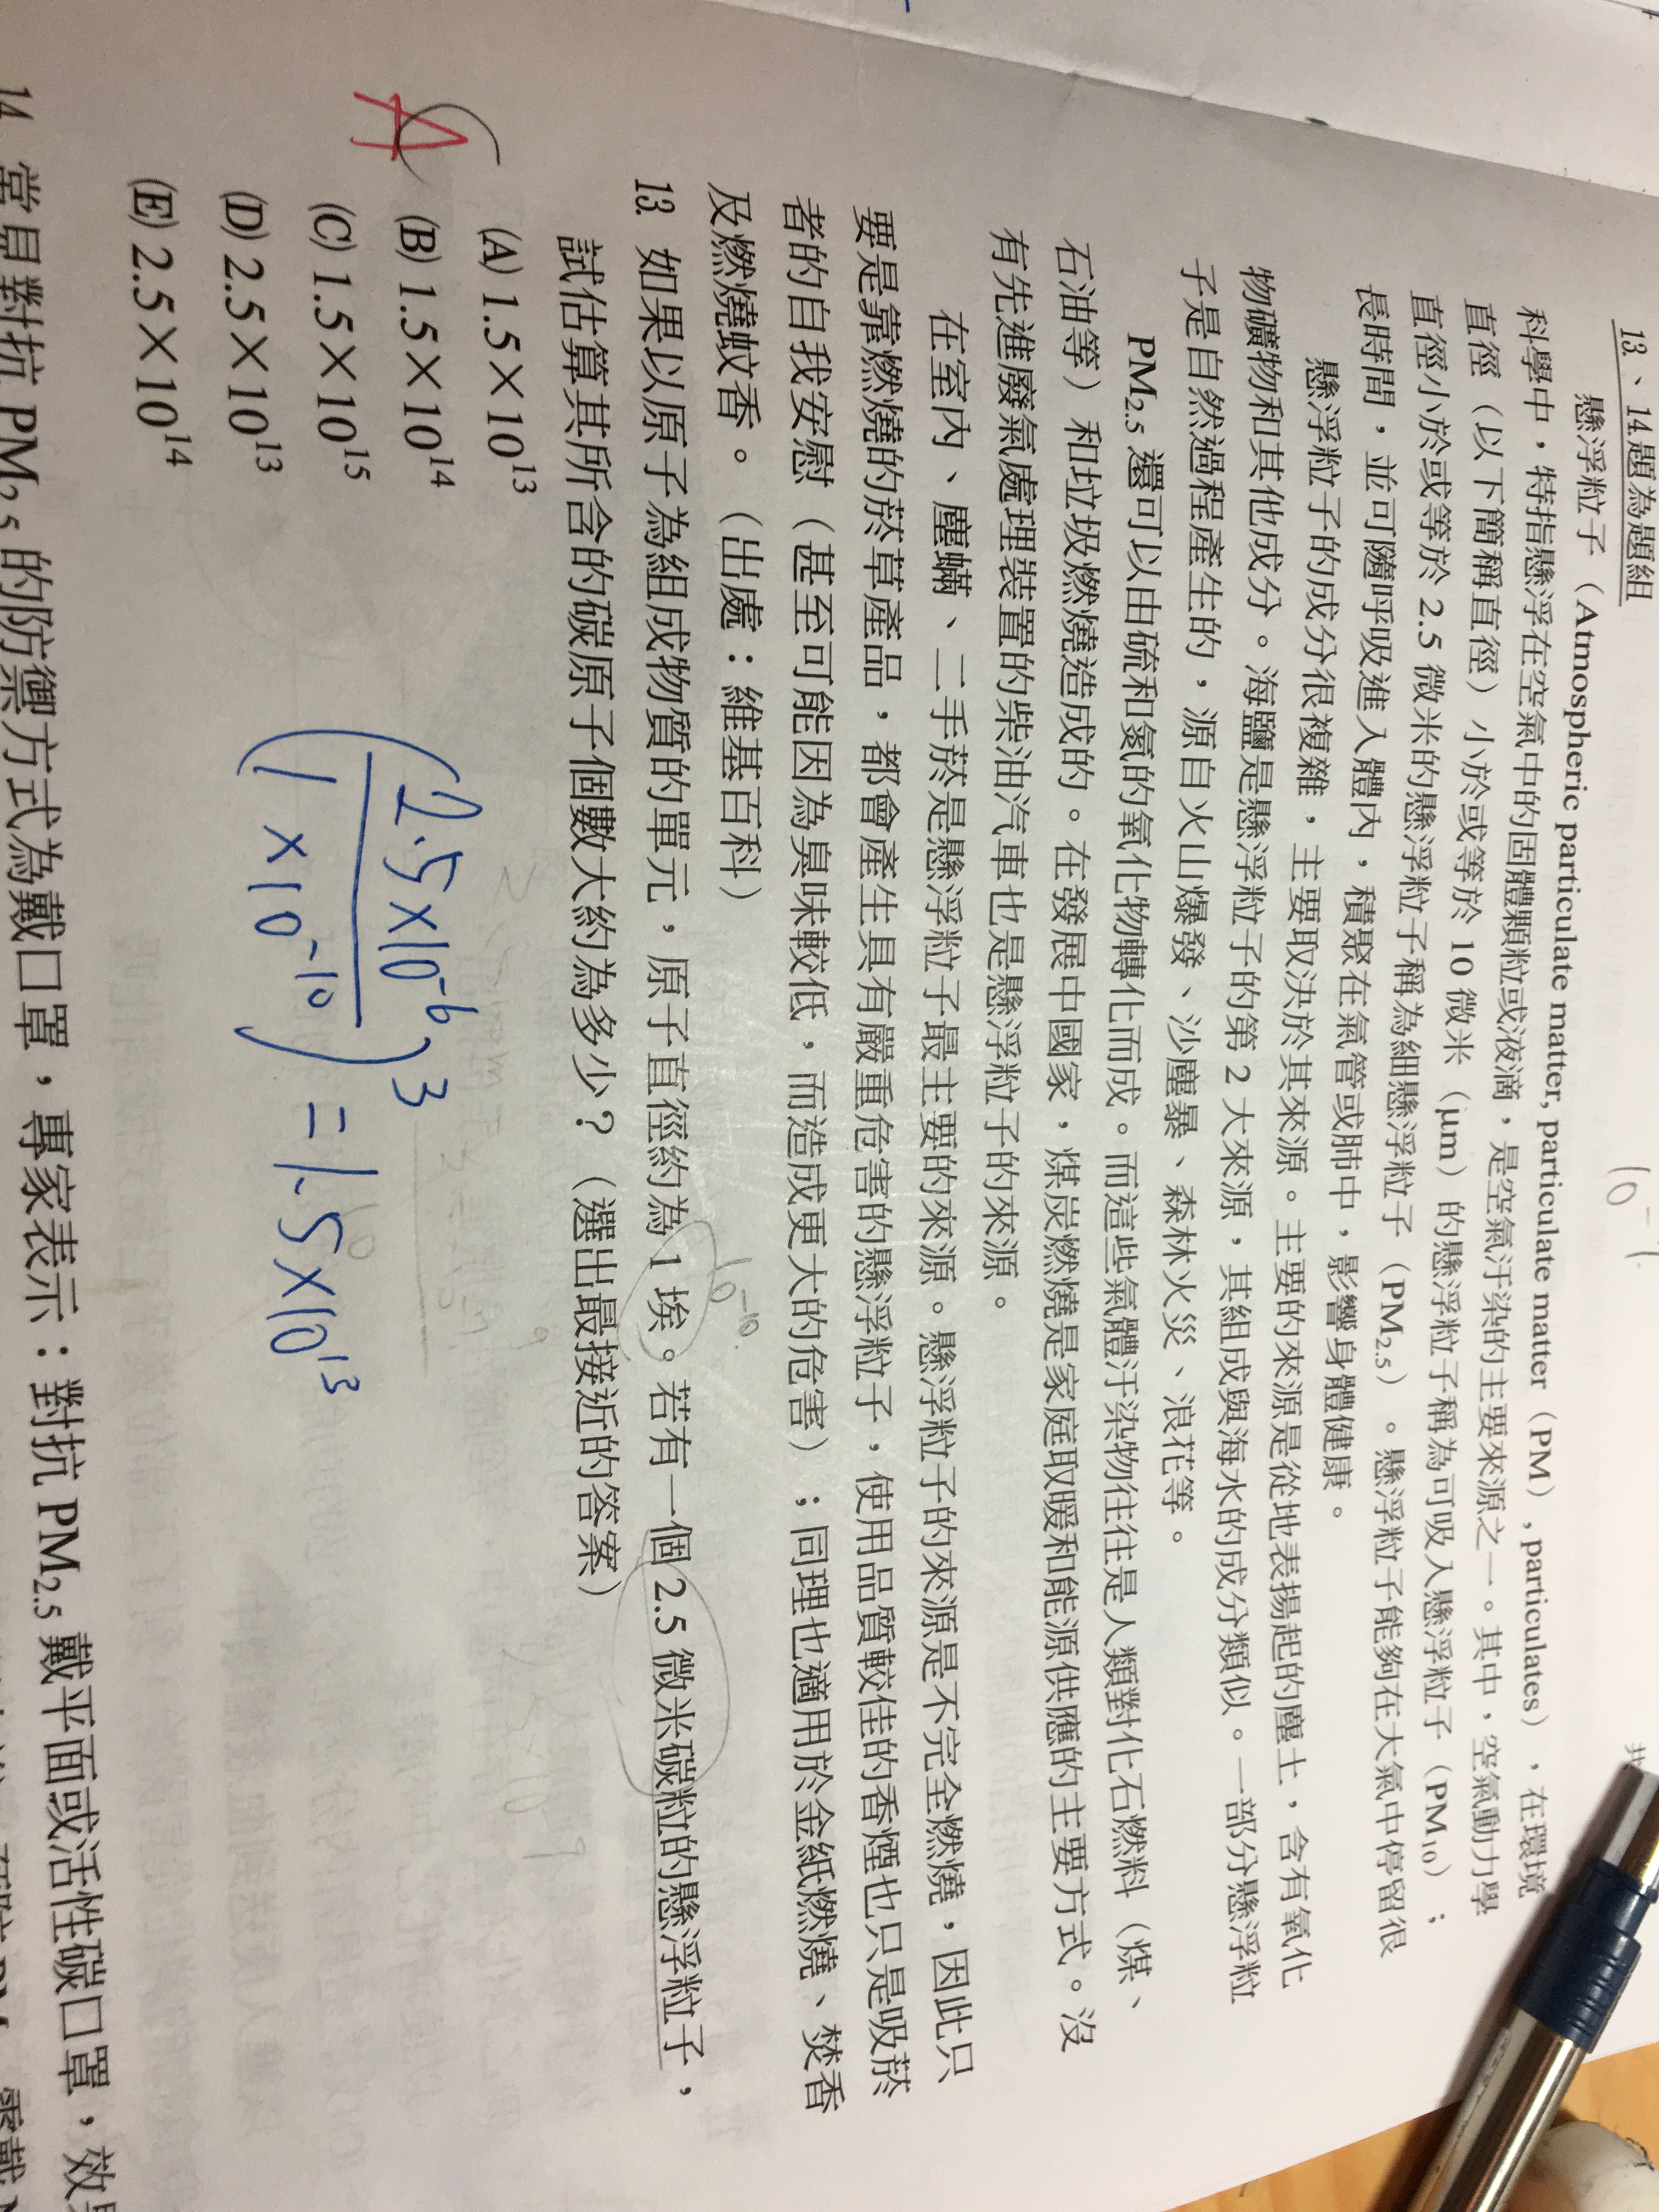 13、14題為題組
懸浮粒子（Atmospheric particulate matter, particulate matter（PM）, particulates），在環境
科學中，特指懸浮在空氣中的固體顆粒或液滴，是空氣汙染的主要來源之一。其中，空氣動力學
直徑（以下簡稱直徑）小於或等於 10 微米（μm）的懸浮粒子稱為可吸入懸浮粒子（PM₁₀）；
直徑小於或等於 2.5 微米的懸浮粒子稱為細懸浮粒子（PM₂.₅）。懸浮粒子能夠在大氣中停留很
長時間，並可隨呼吸進入體內，積聚在氣管或肺中，影響身體健康。
懸浮粒子的成分很複雜，主要取決於其來源。主要的來源是從地表揚起的塵土，含有氧化
物礦物和其他成分。海鹽是懸浮粒子的第 2 大來源，其組成與海水的成分類似。一部分懸浮粒
子是自然過程產生的，源自火山爆發、沙塵暴、森林火災、浪花等。
PM₂.₅ 還可以由硫和氮的氧化物轉化而成。而這些氣體汙染物往往是人類對化石燃料（煤、
石油等）和垃圾燃燒造成的。在發展中國家，煤炭燃燒是家庭取暖和能源供應的主要方式。沒
有先進廢氣處理裝置的柴油汽車也是懸浮粒子的來源。
在室內、塵蟎、二手菸是懸浮粒子最主要的來源。懸浮粒子的來源是不完全燃燒，因此只
要是靠燃燒的菸草產品，都會產生具有嚴重危害的懸浮粒子，使用品質較佳的香煙也只是吸菸
者的自我安慰（甚至可能因為臭味較低，而造成更大的危害）；同理也適用於金紙燃燒、焚香
及燃燒蚊香。（出處：維基百科）
10⁻¹⁰
13. 如果以原子為組成物質的單元，原子直徑約為 1 埃。若有一個 2.5 微米碳粒的懸浮粒子，
試估算其所含的碳原子個數大約為多少？（選出最接近的答案）
(A) 1.5×10¹³
A
(B) 1.5×10¹⁴
(C) 1.5×10¹⁵
(D) 2.5×10¹³
(E) 2.5×10¹⁴
(2.5×10⁻⁶ / 1×10⁻¹⁰)³ = 1.5×10¹³
14. 常見對抗 PM₂.₅ 的防禦方式為戴口罩，專家表示：對抗 PM₂.₅ 戴平面或活性碳口罩，效果